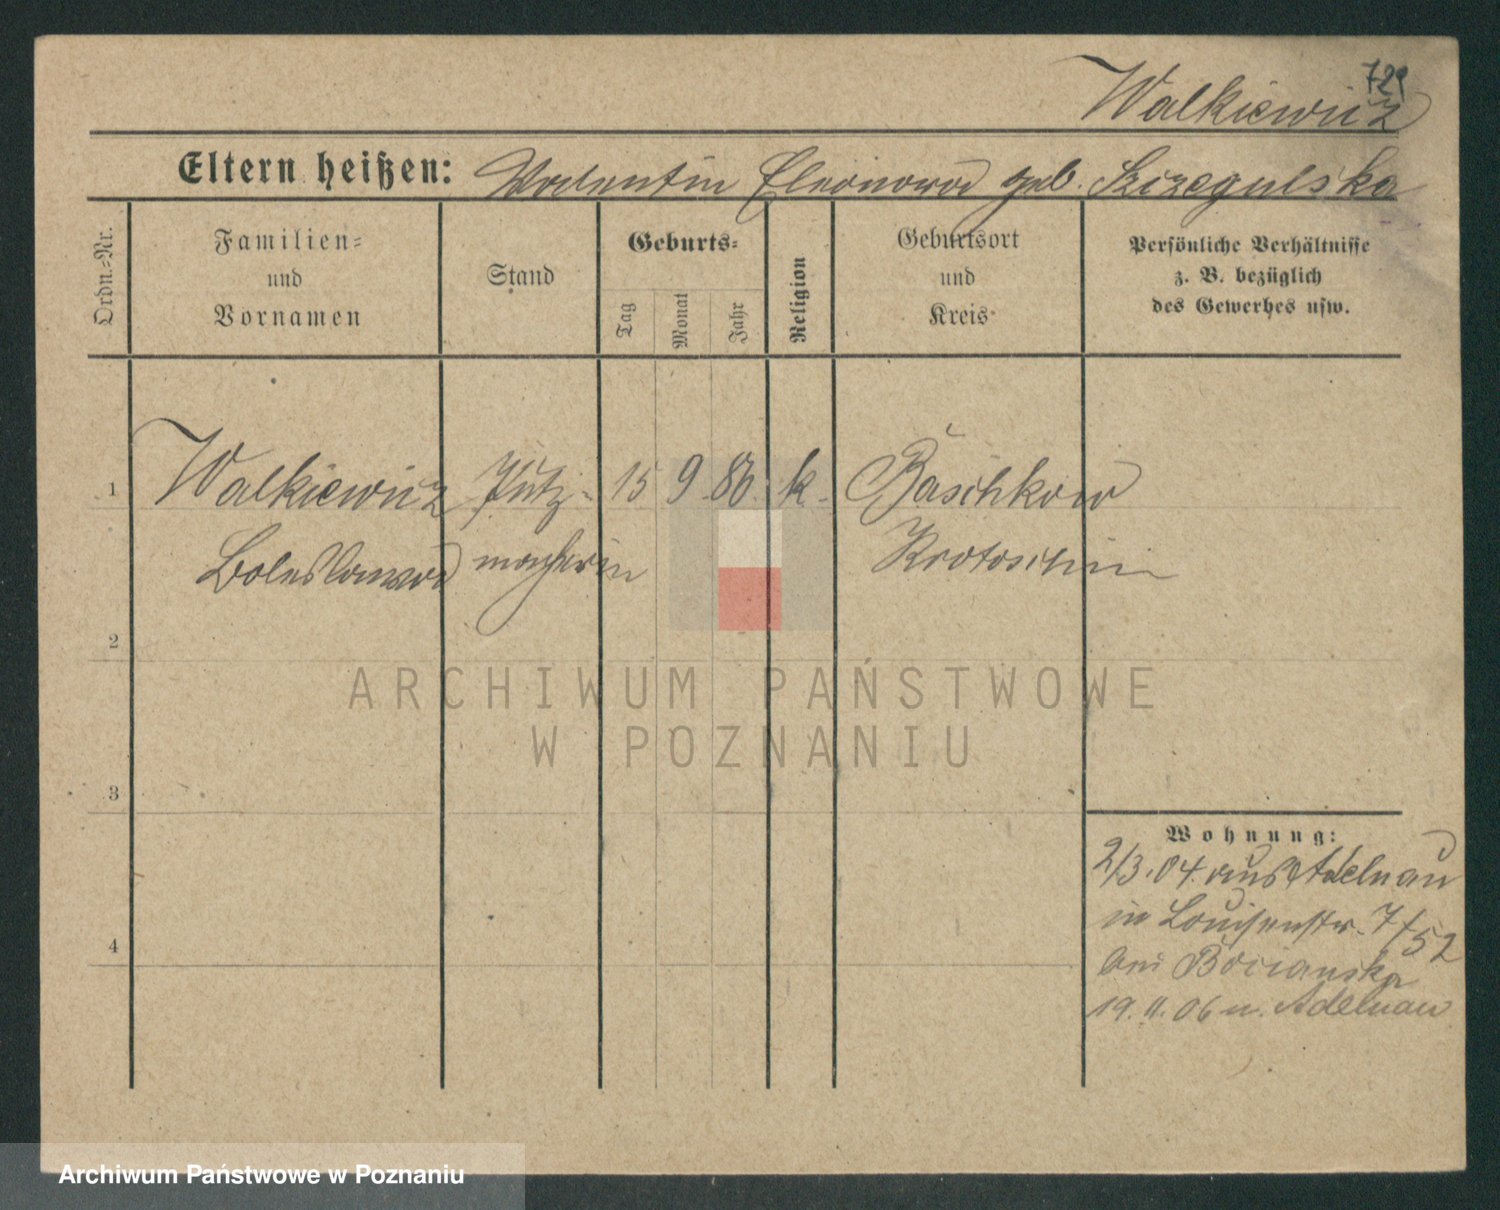 729
Walkiewicz
Eltern heißen: Valentin Eleonora geb. Szczegulska
Ordn.-Nr.
Familien-
und
Vornamen
Stand
Geburts-
Tag
Monat
Jahr
Religion
Geburtsort
und
Kreis
Persönliche Verhältnisse
z. B. bezüglich
des Gewerbes usw.
1 Walkiewicz Putz- 15 9. 86. k. Baschkow
Boleslawa macherin Krotoschin
2
3
4
Wohnung:
2/3.04. aus Adelnau
in Louisenstr. 7/52
bei Bocianska
19.11.06 n. Adelnau
ARCHIWUM PAŃSTWOWE
W POZNANIU
Archiwum Państwowe w Poznaniu